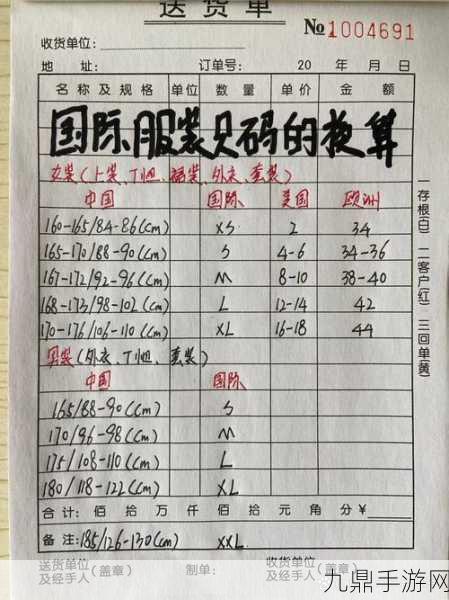 送货单
No 1004691
收货单位:
地 址: 订单号: 20 年 月 日
名称及规格 单位 数量 单价 金额
国际服装尺码的换算
女装(上装、T恤、裙装、外衣、套装)
中国 国际 美国 欧洲
160-165/84-86(cm) XS 2 34
165-170/88-90(cm) S 4-6 34-36
167-172/92-96(cm) M 8-10 38-40
168-173/98-102(cm) L 12-14 42
170-176/106-110(cm) XL 16-18 44
男装(外衣、T恤、套装)
中国 国际
165/88-90(cm) S
170/96-98(cm) M
175/108-110(cm) L
180/118-122(cm) XL
合计: 佰 拾 万 仟 佰 拾 元 角 分¥
备注: 185/126-130(cm) XXL
送货单位及经手人(盖章) 制单: 收货单位及经手人(盖章)
一存根(白) 二客户(红) 三回单(黄)
九鼎手游网